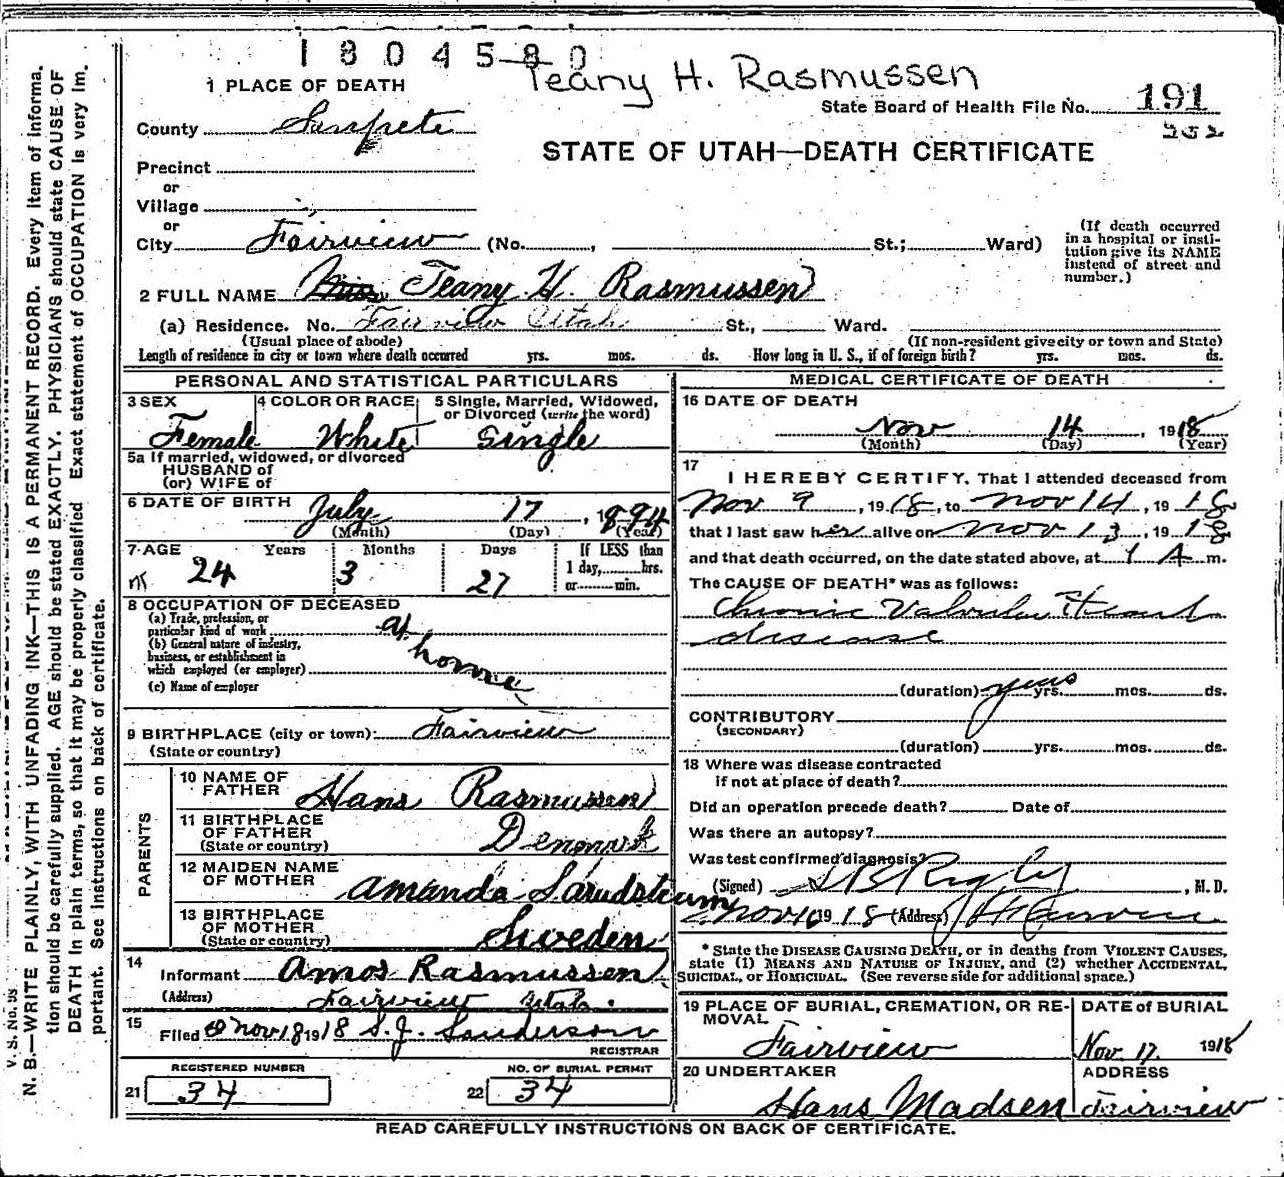 1804580
Teany H. Rasmussen
1 PLACE OF DEATH
State Board of Health File No. 191
202
County Sanpete
STATE OF UTAH—DEATH CERTIFICATE
Precinct
or
Village
or
City Fairview (No. , St.; Ward)
(If death occurred
in a hospital or insti-
tution give its NAME
instead of street and
number.)
2 FULL NAME Miss Teany H. Rasmussen
(a) Residence. No. Fairview Utah St., Ward.
(Usual place of abode) (If non-resident give city or town and State)
Length of residence in city or town where death occurred yrs. mos. ds. How long in U. S., if of foreign birth? yrs. mos. ds.
PERSONAL AND STATISTICAL PARTICULARS
3 SEX 4 COLOR OR RACE 5 Single, Married, Widowed,
or Divorced (write the word)
Female White Single
5a If married, widowed, or divorced
HUSBAND of
(or) WIFE of
6 DATE OF BIRTH July 17, 1894
(Month) (Day) (Year)
7 AGE Years Months Days If LESS than
1 day, hrs.
or min.
24 3 27
8 OCCUPATION OF DECEASED
(a) Trade, profession, or
particular kind of work at home
(b) General nature of industry,
business, or establishment in
which employed (or employer)
(c) Name of employer
9 BIRTHPLACE (city or town) Fairview
(State or country)
PARENTS
10 NAME OF
FATHER Hans Rasmussen
11 BIRTHPLACE
OF FATHER
(State or country) Denmark
12 MAIDEN NAME
OF MOTHER Amanda
13 BIRTHPLACE
OF MOTHER
(State or country) Sweden
14
Informant Amos Rasmussen
(Address) Fairview Utah.
15
Filed Nov 18 1918 S.J. Sanderson
REGISTRAR
REGISTERED NUMBER NO. OF BURIAL PERMIT
21 34 22 34
MEDICAL CERTIFICATE OF DEATH
16 DATE OF DEATH
Nov 14, 1918
(Month) (Day) (Year)
17
I HEREBY CERTIFY, That I attended deceased from
Nov 9, 1918, to Nov 14, 1918
that I last saw her alive on Nov 13, 1918
and that death occurred, on the date stated above, at 1 A m.
The CAUSE OF DEATH* was as follows:
Chronic Valvular Heart
disease
(duration) years yrs. mos. ds.
CONTRIBUTORY
(SECONDARY)
(duration) yrs. mos. ds.
18 Where was disease contracted
if not at place of death?
Did an operation precede death? Date of
Was there an autopsy?
Was test confirmed diagnosis?
(Signed) Rigby, M. D.
Nov 16 1918 (Address) Fairview
* State the DISEASE CAUSING DEATH, or in deaths from VIOLENT CAUSES,
state (1) MEANS AND NATURE OF INJURY, and (2) whether ACCIDENTAL,
SUICIDAL, or HOMICIDAL. (See reverse side for additional space.)
19 PLACE OF BURIAL, CREMATION, OR RE-
MOVAL
Fairview
DATE of BURIAL
Nov. 17. 1918
20 UNDERTAKER ADDRESS
Hans Madsen Fairview
READ CAREFULLY INSTRUCTIONS ON BACK OF CERTIFICATE.
N. B.—WRITE PLAINLY, WITH UNFADING INK—THIS IS A PERMANENT RECORD. Every item of informa-
tion should be carefully supplied. AGE should be stated EXACTLY. PHYSICIANS should state CAUSE OF
DEATH in plain terms, so that it may be properly classified Exact statement of OCCUPATION is very im-
portant. See instructions on back of certificate.